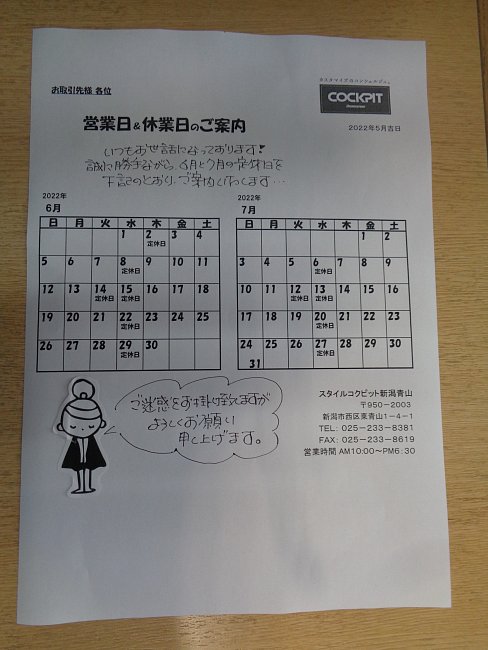 カスタマイズのコンシェルジュ。
お取引先様 各位
COCKPIT
営業日&休業日のご案内
2022年5月吉日
いつもお世話になっております!
誠に勝手ながら、6月と7月の定休日を
下記のとおり、ご案内いたします…
2022年
6月
日 月 火 水 木 金 土
1 2 3 4
定休日
5 6 7 8 9 10 11
定休日
12 13 14 15 16 17 18
定休日 定休日
19 20 21 22 23 24 25
定休日
26 27 28 29 30
定休日
2022年
7月
日 月 火 水 木 金 土
1 2
3 4 5 6 7 8 9
定休日
10 11 12 13 14 15 16
定休日 定休日
17 18 19 20 21 22 23
定休日
24 25 26 27 28 29 30
定休日
31
ご迷惑をお掛け致しますが
よろしくお願い
申し上げます。
スタイルコクピット新潟青山
〒950-2003
新潟市西区東青山1-4-1
TEL: 025-233-8381
FAX: 025-233-8619
営業時間 AM10:00~PM6:30